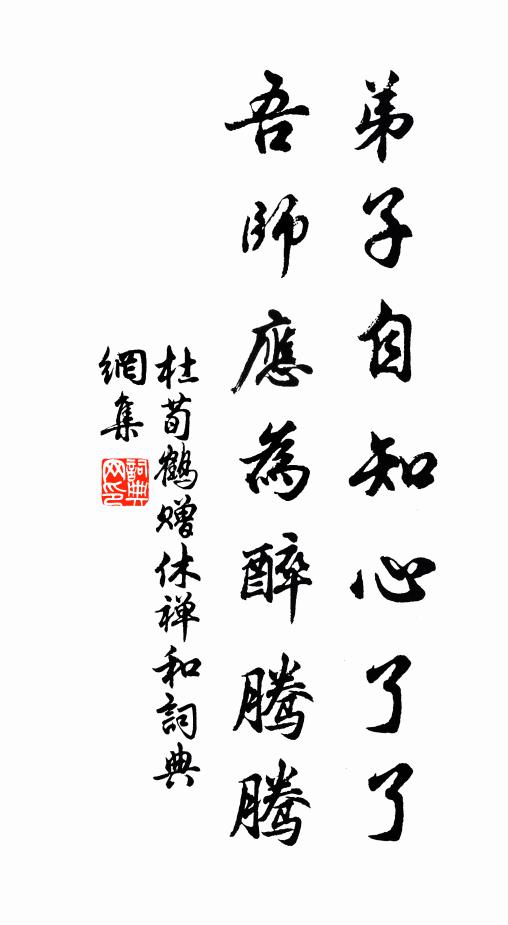 弟子自知心了了
吾師應為醉騰騰
杜荀鶴贈休禅和詞典
網集
詞典
网印